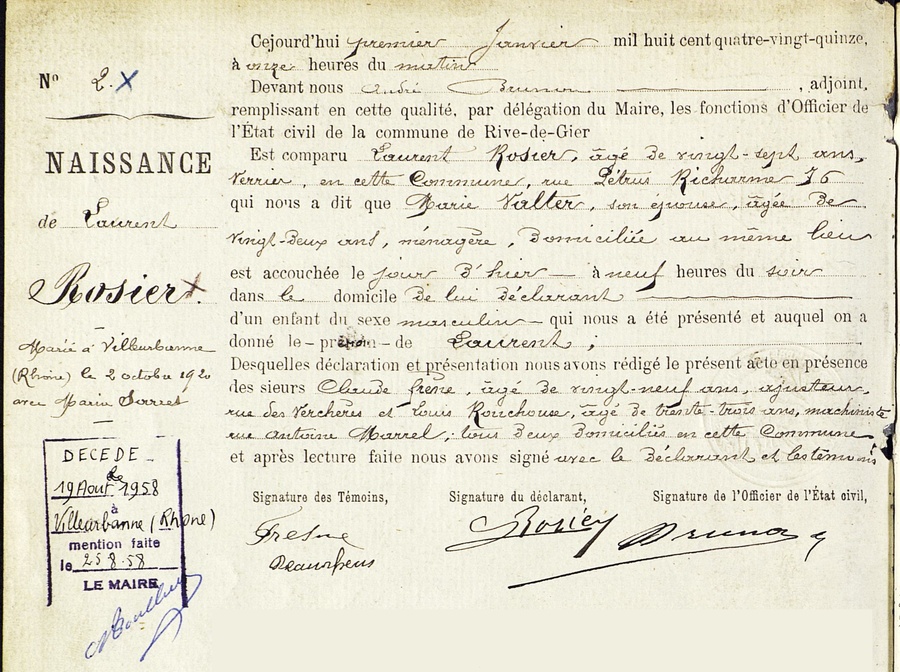 Cejourd'hui premier Janvier mil huit cent quatre-vingt-quinze,
à onze heures du matin
Nº 2. X
Devant nous André Brunon, adjoint,
remplissant en cette qualité, par délégation du Maire, les fonctions d'Officier de
l'État civil de la commune de Rive-de-Gier
NAISSANCE
de Laurent
Rosier.
Est comparu Laurent Rosier, âgé de vingt-sept ans,
Verrier, en cette Commune, rue Pétrus Richarme 16
qui nous a dit que Marie Valter, son epouse, âgée de
vingt-deux ans, ménagère, domiciliée au même lieu
est accouchée le jour d'hier à neuf heures du soir
dans le domicile de lui déclarant
d'un enfant du sexe masculin qui nous a été présenté et auquel on a
donné le prénom de Laurent;
Desquelles déclaration et présentation nous avons rédigé le présent acte en présence
des sieurs Claude Frêne, âgé de vingt-neuf ans, ajusteur,
rue des Verchères et Louis Rouchouse, âgé de trente-trois ans, machiniste
rue Antoine Marrel, tous deux domiciliés en cette Commune
et après lecture faite nous avons signé avec le déclarant et les témoins
Marié à Villeurbanne
(Rhône) le 2 octobre 1920
avec Maria
DECEDE
le
19 Aout 1958
à
Villeurbanne (Rhône)
mention faite
le 25.8.58
LE MAIRE
Signature des Témoins,
Signature du déclarant,
Signature de l'Officier de l'État civil,
Fresne
Rosier
Brunon